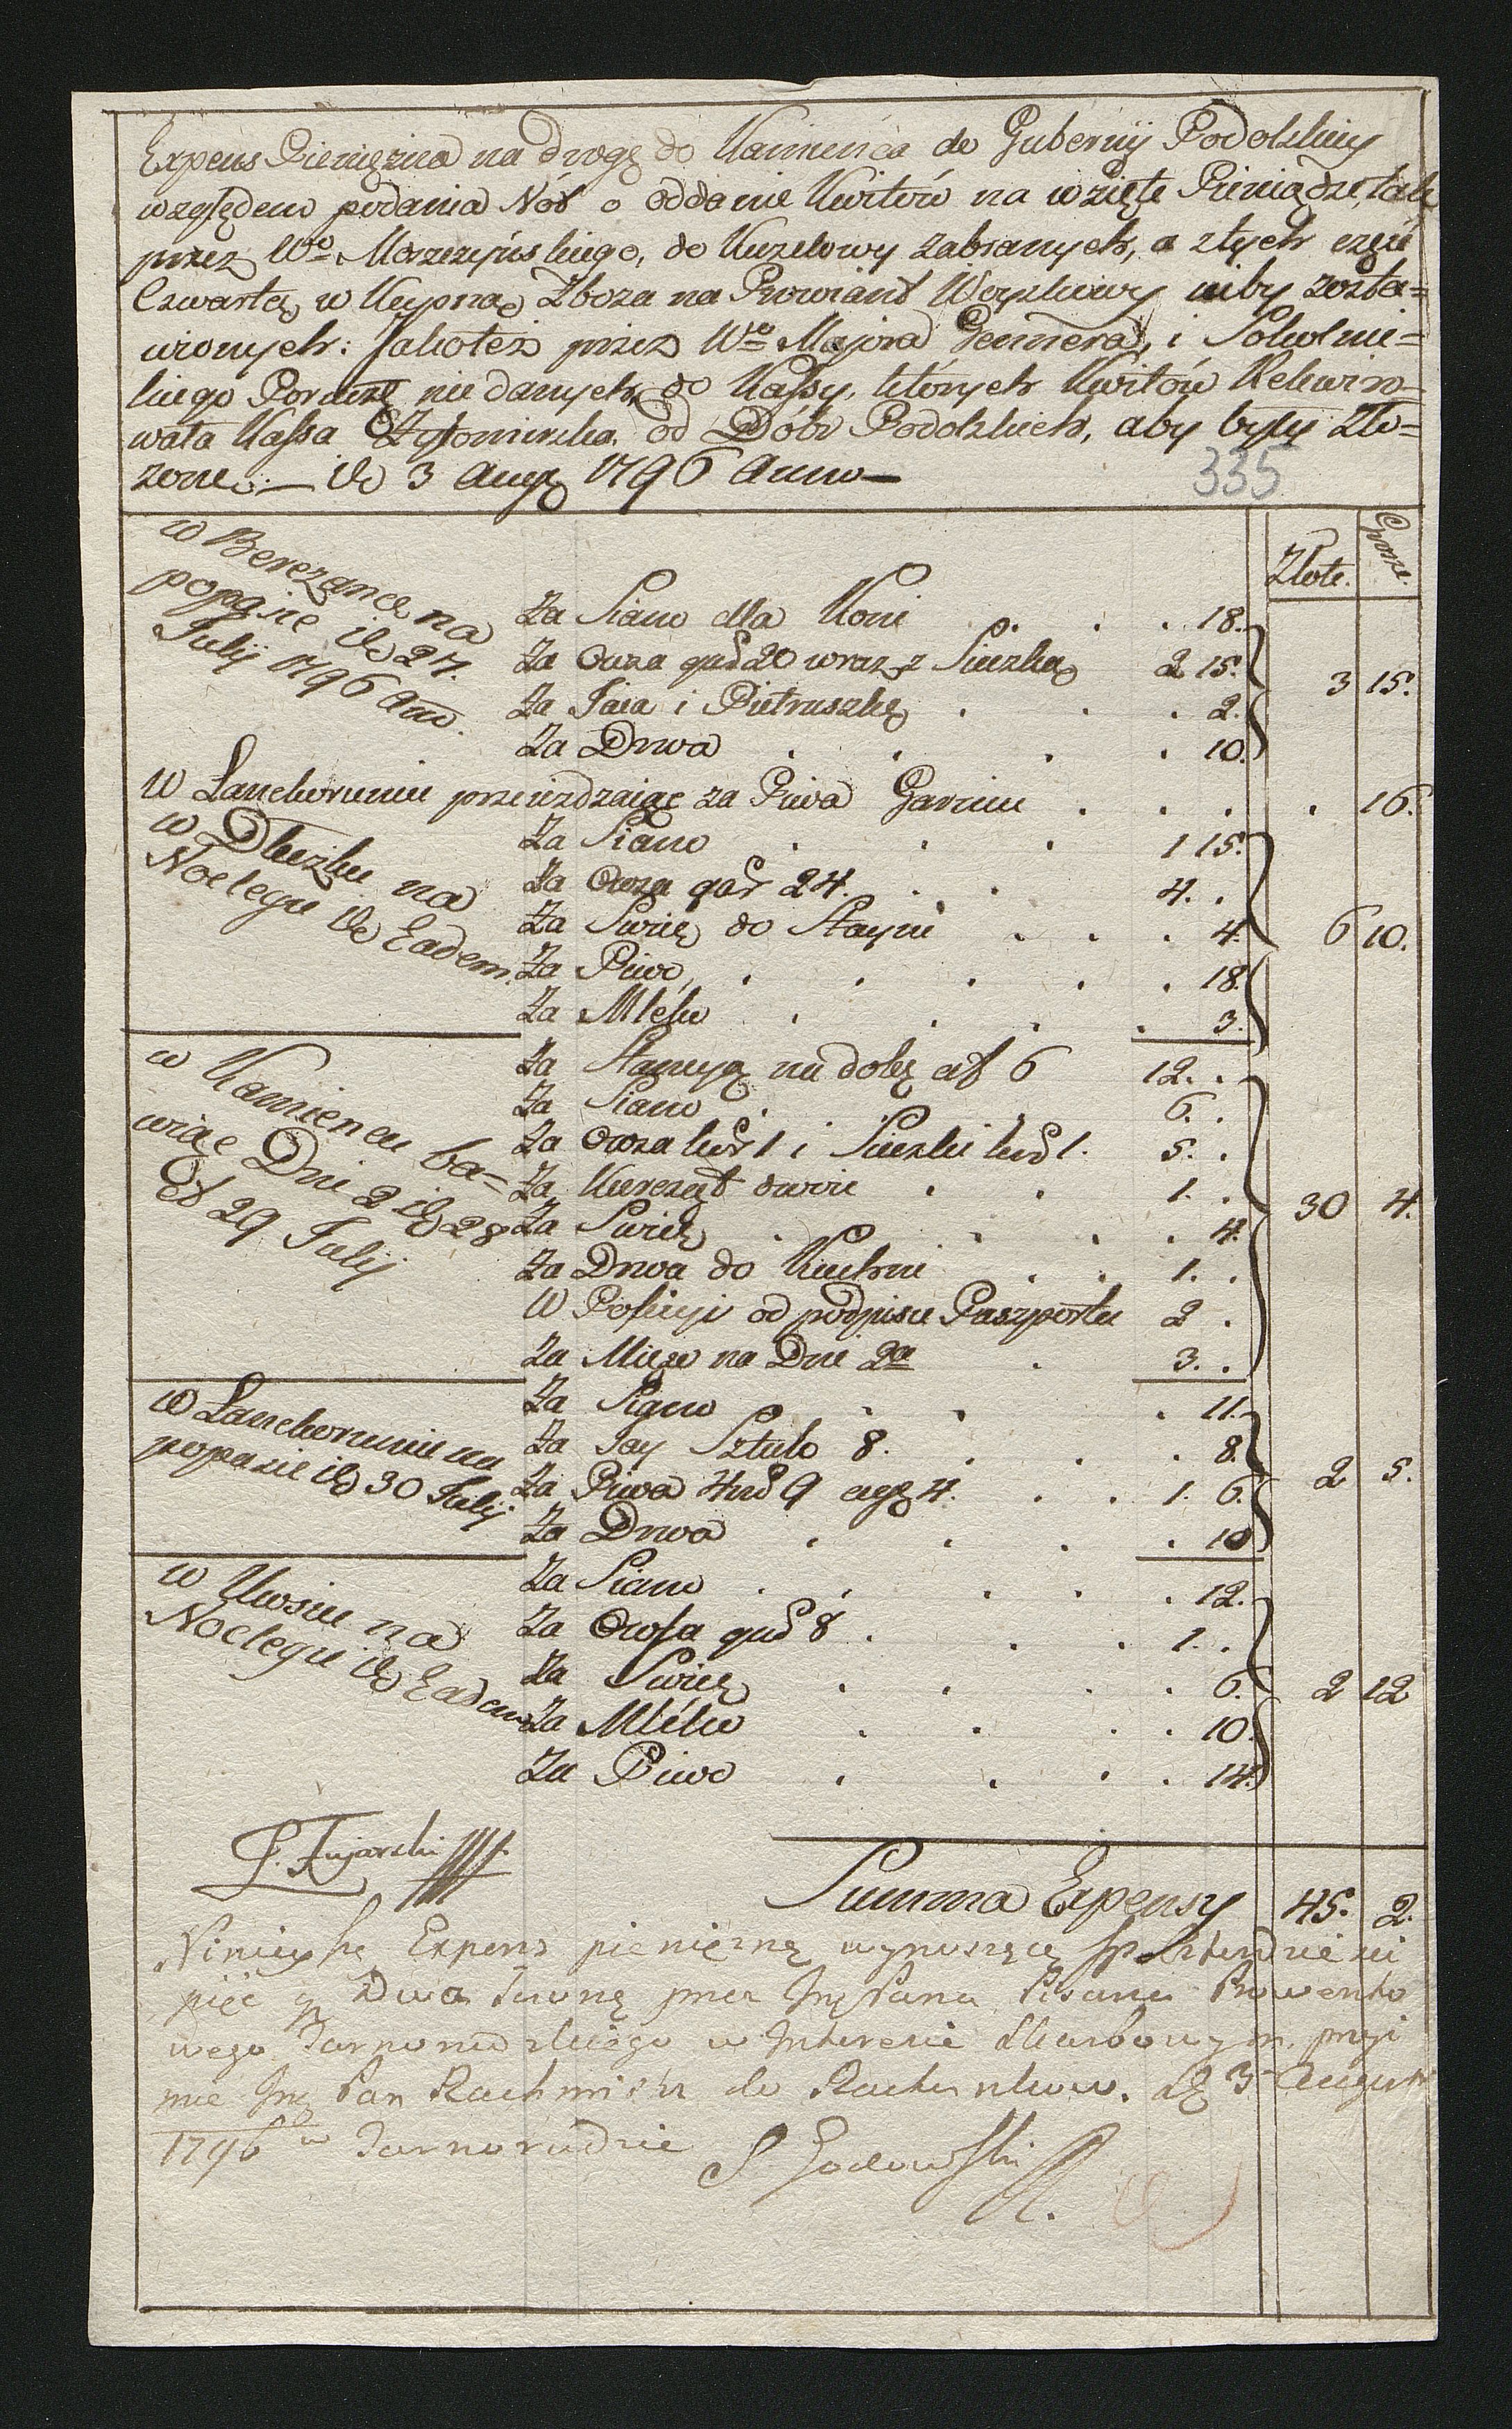 Expens Pieniężna na drogę do Kamieńca do Gubernij Podolskiey
względem podania Nót o oddanie Kwitów na wzięte Pieniądze, tak
przez Wo Morzczyńskiego, do Kuzelowy zabranych, a z tych część
Czwartą w Kupną Zboza na Prowiant Woyskowy niby zosta=
wionych: Jakoteż przez Wo Majora i Sokolnic=
kiego Porucze nie danych, do Kassy, których Kwitów Rekwiro=
wała Kassa Żytomirska, od Dóbr Podolskich, aby były zło=
zone.— do 3 Augs 1796 Anno—
335
Złote. Grosze.
w Berezance na
popasie do 27.
Julij 1796 Ano.
Za Siano dla Koni . . . 18.
Za Owsa gar 20 wraz z Sieczką 2 15.
Za Jaia i Pietruszkę . . . 2.
Za Drwa . . . . 10.
3 15.
W Lanckoruniu przeiezdzaiąc za Piwa Garniec . . . . 16.
w Dłużku na
Noclegu do Eadem.
Za Siano . . . 1 15.
Za Owsa gar 24. . . 4. .
Za Swicę do Stayni . . . 4.
Za Piwo, . . . . . 18.
Za Mleko . . . . 3.
6 10.
w Kamiencu ba=
wiąc Dni 2 do 28
Et 29 Julij
Za Stancyą na dobę a f 6 12. .
Za Siano . . 6. .
Za Owsa kor 1 i Sieczki kor 1. 5. .
Za Kurcząt dwoie . . 1. .
Za Swicę . . . . 4.
Za Drwa do Kuchni . . 1. .
W Policyi od podpisu Paszportu 2 .
Za Mięso na Dni 2a . 3. .
30 4.
w Lanckoruniu na
popasie do 30 Julij
Za Siano . . . 11.
Za Jay Sztuk 8. . . . 8.
Za Piwa 9 a g 4. . . 1. 6.
Za Drwa . . . . 10
2 5.
w Uwsiu na
Noclegu do Eadem
Za Siano . . . . . 12.
Za Owsa gar 8 . . . 1. .
Za Swicę . . . . 6.
Za Mleko . . . . 10.
Za Piwo . . . . 14.
2 12
Summa Expensy 45. 2.
Ninieyszą Expens pieniężną wynoszącą fp czterdzieści
pięć g Dwa przez Jmć Pana Pisarza Prowento
wego Tarnorudzkiego w Interesie Skarbowym, przyi
mie Jmć Pan Rachmistrz do Rachunków. d 3 Augusti
1796 w Tarnorudzie